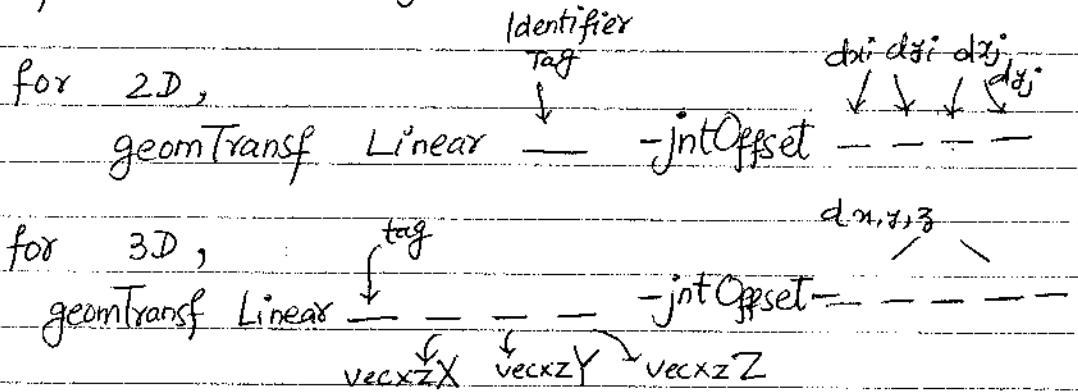 Identifier
Tag
dxi dyi dxj dyj
for 2D,
geomTransf Linear — -jntOffset — — — —
dx,y,z
for 3D, tag
geomTransf Linear — — — — -jntOffset — — — — —
vecxzX vecxzY vecxzZ